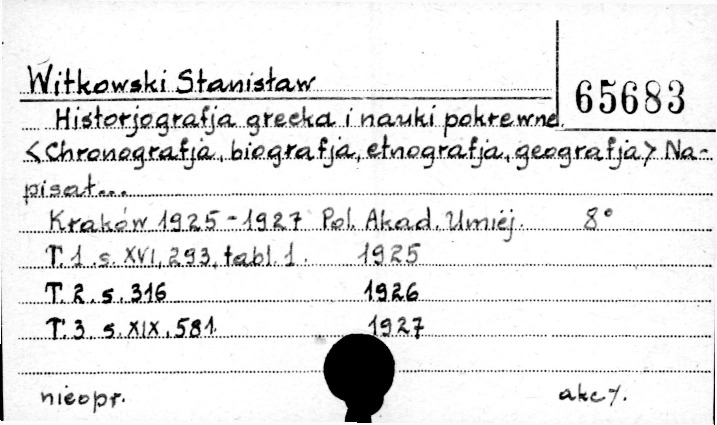 Witkowski Stanisław
65683
Historjografja grecka i nauki pokrewne.
<Chronografja, biografja, etnografja, geografja> Na-
pisał...
Kraków 1925-1927 Pol. Akad. Umiej. 8°
T. 1. s. XVI, 293, tabl. 1. 1925
T. 2. s. 316 1926
T. 3. s. XIX, 581. 1927
nieopr. akc 7.